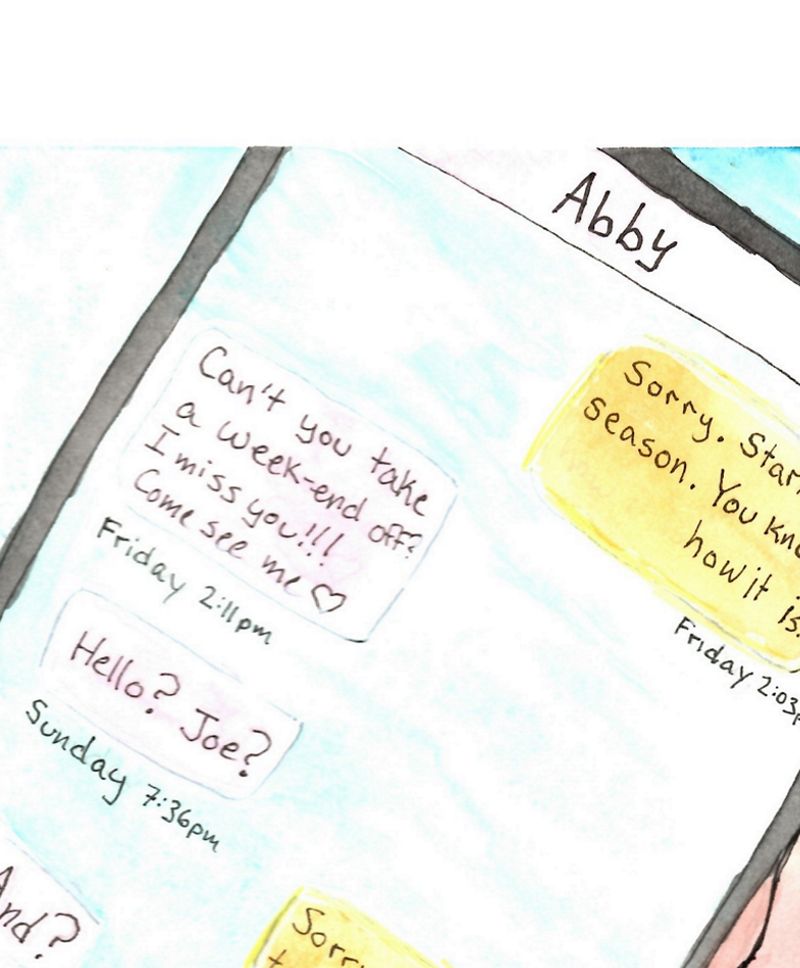 Abby
Sorry. Star
season. You kno
how it is.
Friday 2:03p
Can't you take
a week-end off?
I miss you!!!
Come see me ♡
Friday 2:11pm
Hello? Joe?
Sunday 7:36pm
And?
Sorry
t